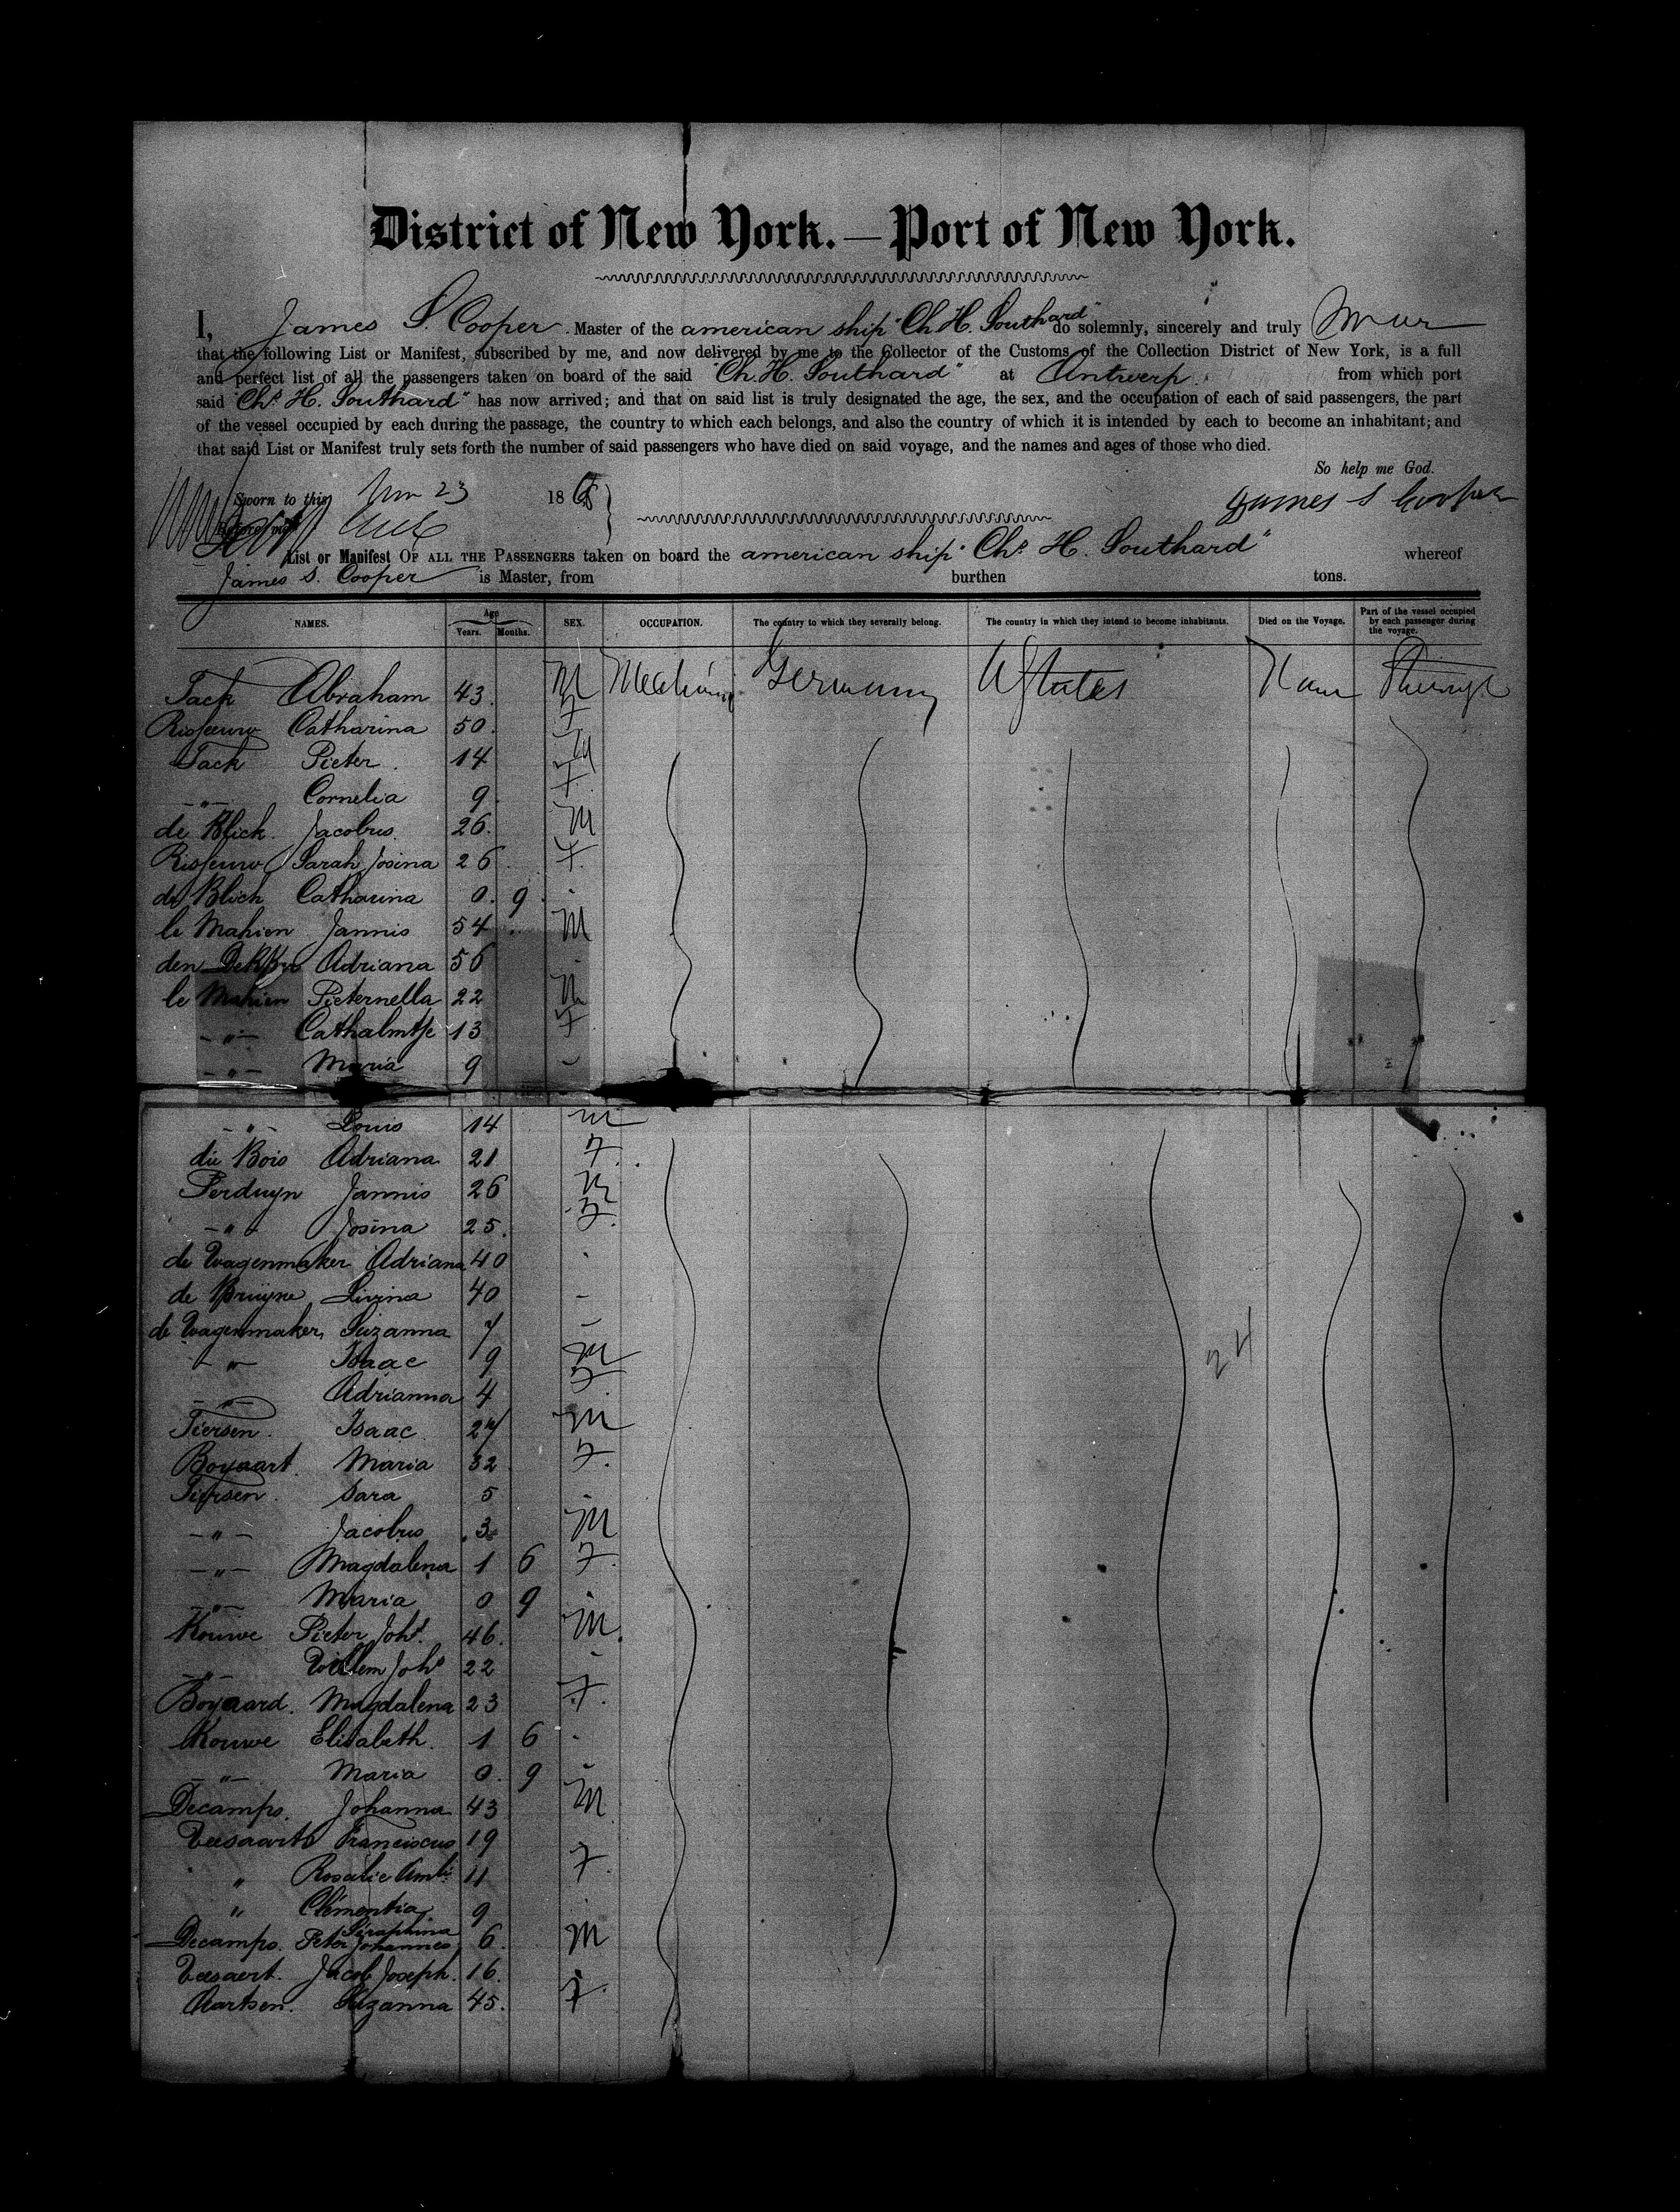 District of New York.—Port of New York.
I, James S. Cooper. Master of the american ship "Ch. H. Southard" do solemnly, sincerely and truly swear
that the following List or Manifest, subscribed by me, and now delivered by me to the Collector of the Customs of the Collection District of New York, is a full
and perfect list of all the passengers taken on board of the said "Ch. H. Southard" at Antwerp. from which port
said "Chs H. Southard" has now arrived; and that on said list is truly designated the age, the sex, and the occupation of each of said passengers, the part
of the vessel occupied by each during the passage, the country to which each belongs, and also the country of which it is intended by each to become an inhabitant; and
that said List or Manifest truly sets forth the number of said passengers who have died on said voyage, and the names and ages of those who died.
So help me God.
Sworn to this 23 186
James S Cooper
Before me
List or Manifest OF ALL THE PASSENGERS taken on board the american ship "Chs H. Southard" whereof
James S. Cooper is Master, from burthen tons.
NAMES. Age Years. Months. SEX. OCCUPATION. The country to which they severally belong. The country in which they intend to become inhabitants. Died on the Voyage. Part of the vessel occupied by each passenger during the voyage.
Tack Abraham 43. M Mechanic Germany UStates None Steerage
Risseeuw Catharina 50. F
Tack Pieter. 14 M
-"- Cornelia 9 F
de Blick. Jacobus. 26. M
Risseeuw Sarah Josina 26. F.
de Blick Catharina 0. 9
le Mahien Jannis 54 M
den Dekker Adriana 56
le Mahien Pieternella 22
-"- Cathalintje 13 F
-"- Maria 9
-"- Louis 14 M
du Bois Adriana 21 F.
Perduyn Jannis 26 M
-"- Josina 25. F.
de Wagenmaker Adriana 40
de Bruijne Livina 40 -
de Wagenmaker, Suzanna 7 -
-"- Isaac 9 M
-"- Adrianna 4 F
Tiersen. Isaac 27 M
Boyaart. Maria 32 F.
Tiersen. Sara 5
-"- Jacobus 3. M
-"- Magdalena 1 6 F.
-"- Maria 0 9
Kouwe Pieter Johs. 46. M.
-"- Willem Johs 22
Boyaard. Magdalena 23 F.
Kouwe Elisabeth. 1 6
-"- Maria 0. 9
Decamps. Johanna 43 M
Franciscus 19
" Rosalie 11 F.
" Clementia 9
Seraphina
Decamps. Peter Johannes 6. M
Jacob Joseph. 16.
Aartsen. Suzanna 45. F.
24